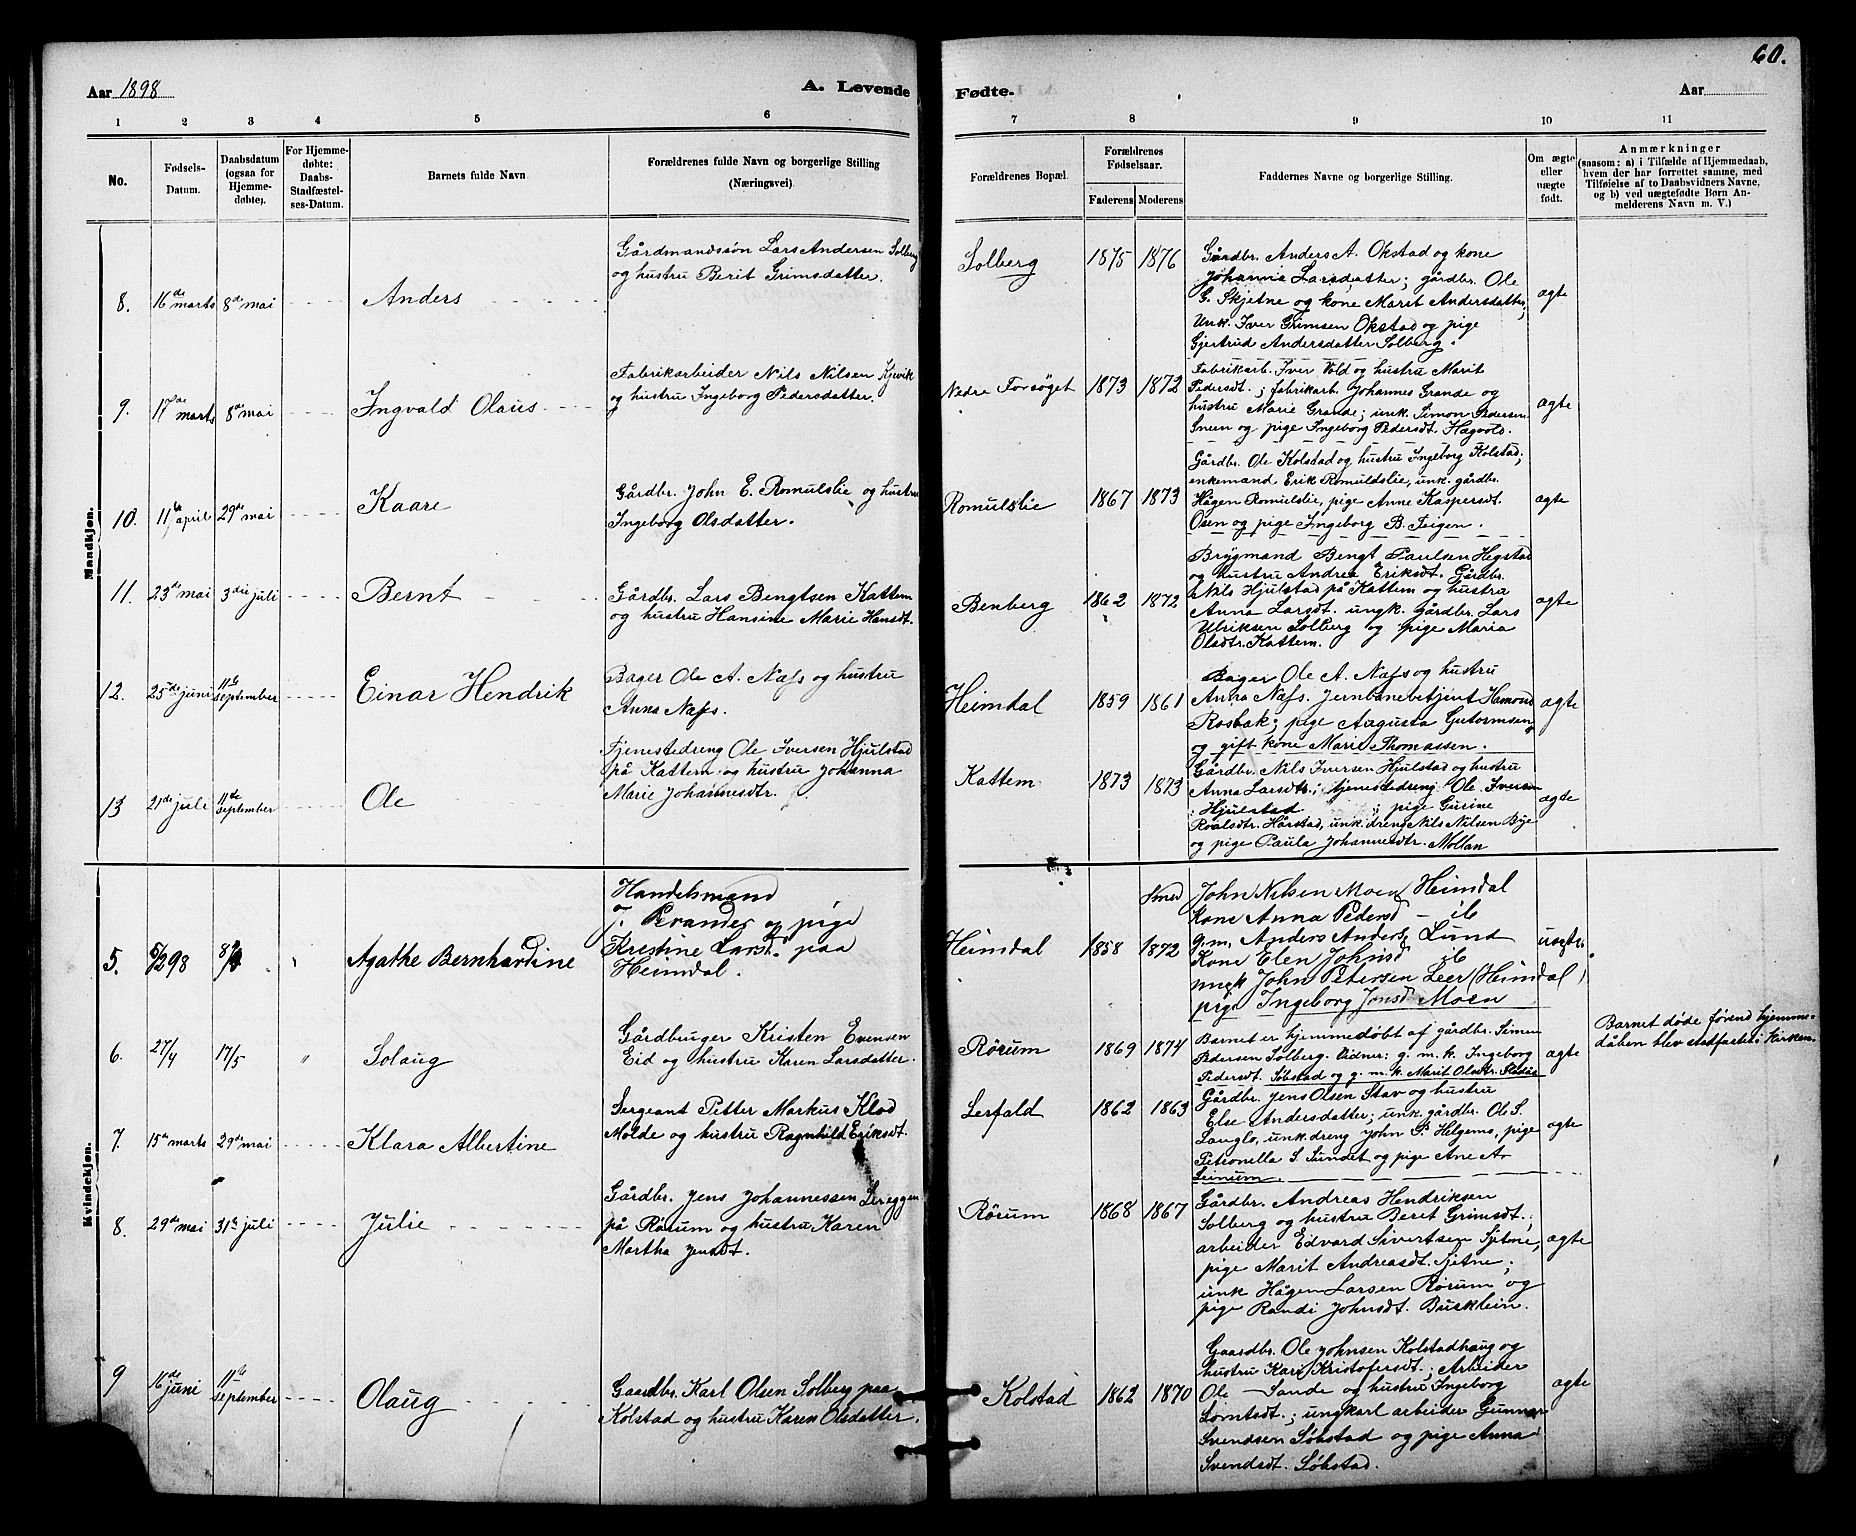 60.
Aar 1898
A. Levende
Fødte.
Aar
1 2 3 4 5 6 7 8 9 10 11
No.
Fødsels-
Datum.
Daabsdatum
(ogsaa for
Hjemme-
døbte).
For Hjemme-
døbte:
Daabs-
Stadfæstel-
ses-Datum.
Barnets fulde Navn
Forældrenes fulde Navn og borgerlige Stilling
(Næringsvei)
Forældrenes Bopæl.
Forældrenes
Fødselsaar.
Faderens
Moderens
Faddernes Navne og borgerlige Stilling.
Om ægte
eller
uægte
født.
Anmærkninger
(saasom: a) i Tilfælde af Hjemmedaab,
hvem der har forrettet samme, med
Tilføielse af to Daabsvidners Navne,
og b) ved uægtefødte Børn An-
melderens Navn m. V.)
Mandkjøn.
8. 16de marts 8de mai Anders
Gårdmandssøn Lars Andersen Solberg
og hustru Berit Grimsdatter.
Solberg 1875 1876
Gårdbr. Anders A. Okstad og kone
Johanna Larsdatter; gårdbr. Ole
G. Skjetne og kone Marit Andersdatter;
Unk. Iver Grimsen Okstad og pige
Gjertrud Andersdatter Solberg.
ægte
9. 17de marts 8de mai Ingvald Olaus
Fabrikarbeider Nils Nilsen Kjevik
og hustru Ingeborg Pedersdatter.
Nedre Forsøget 1873 1872
Fabrikarb. Iver Vold og hustru Marit
Pedersdt.; fabrikarb. Johannes Grande og
hustru Marie Grande; unk. Simon Pedersen
og pige Ingeborg Pedersdt.
ægte
10. 11te april 29de mai Kaare
Gårdbr. John E. Romulslie og hustru
Ingeborg Olsdatter.
Romulslie 1867 1873
Gårdbr. Ole Kolstad og hustru Ingeborg Kolstad;
enkemand Erik Romuldslie, unk. gårdbr.
Hågen Romulslie, pige Anne Kaspersdt.
Osen og pige Ingeborg B. Teigen.
ægte
11. 23de mai 3die juli Bernt
Gårdbr. Lars Bengtsen Kattem
og hustru Hansine Marie Hansdt.
Benberg 1862 1872
Brygmand Bengt Paulsen Hegstad
og hustru Andrea Eriksdt. Gårdbr.
Nils Hjulstad på Kattem og hustru
Anna Larsdt. ungk. gårdbr. Lars
Ulriksen Solberg og pige Maria
Olsdtr. Kattem.
ægte
12. 25de juni 11te september Einar Hendrik
Bager Ole A. Næss og hustru
Anna Næss.
Heimdal 1859 1861
Bager Ole A. Næss og hustru
Anna Næss. Jernbanebetjent
pige Augusta Gutormsen
og gift kone Marie Thomassen.
ægte
13 21de juli 11te september Ole
Tjenestedreng Ole Iversen Hjulstad
på Kattem og hustru Johanna
Marie Johannesdtr.
Kattem 1873 1873
Gårdbr. Nils Iversen Hjulstad og hustru
Anna Larsdtr.; tjenestedreng Ole Iversen
Hjulstad; pige Gurine
Roalsdtr. Hårstad, unk. dreng Nils Nilsen Bye
og pige Paula Johannesdtr. Mollan
ægte
Kvindekjøn.
5. 98 Agathe Bernhardine
Handelsmand
J. Perander og pige
Kristine Larsd. paa
Heimdal.
Heimdal 1858 1872
Smed John Nilsen Moen Heimdal
Kone Anna Pedersd – ib
g.m. Anders Anders. Lund
Kone Elen Johnsd ib
ungk John Petersen Leer (Heimdal)
pige Ingeborg Jonsd Moen
uægte.
6. 27/4 17/5 " Solaug
Gårdbruger Kristen Evensen
Eid og hustru Karen Larsdatter.
Rørum 1869 1874
Barnet er hjemmedøbt af gårdbr. Simen
Pedersen Solberg. Vidner: g. m. k. Ingeborg
Pedersdt. Søbstad og g. m. k. Marit Olsdtr.
ægte
Barnet døde førend hjemme-
dåben blev stadfæstet i Kirken.
7. 15de marts 29de mai Klara Albertine
Sergeant Petter Markus Klod
Molde og hustru Ragnhild Eriksdt.
Lerfald 1862 1863
Gårdbr. Jens Olsen Stav og hustru
Else Andersdatter; unk. gårdbr. Ole S.
Langlo, unk. dreng John P. Helgemo, pige
Petronella S. Sundet og pige Ane A.
Leinum.
ægte
8. 29de mai 31te juli Julie
Gårdbr. Jens Johannessen Lereggen
på Rørum og hustru Karen
Martha Jensdt.
Rørum 1868 1867
Gårdbr. Andreas Hendriksen
Solberg og hustru Berit Grimsdt.;
arbeider Edvard Sivertsen Sjetne,
pige Marit Andreasdt. Sjetne;
unk Hågen Larsen Rørum og
pige Randi Johnsdt. Busklein.
ægte
9 16de juni 11te september Olaug
Gaardbr. Karl Olsen Solberg paa
Kolstad og hustru Karen Olsdatter.
Kolstad 1862 1870
Gaardbr. Ole Johnsen Kolstadhaug og
hustru Kari Kristofersdt.; Arbeider
Ole – Sande og hustru Ingeborg
ungkarl arbeider Gunnar
Svendsen Søbstad og pige Anna
Svendsdt. Søbstad.
ægte